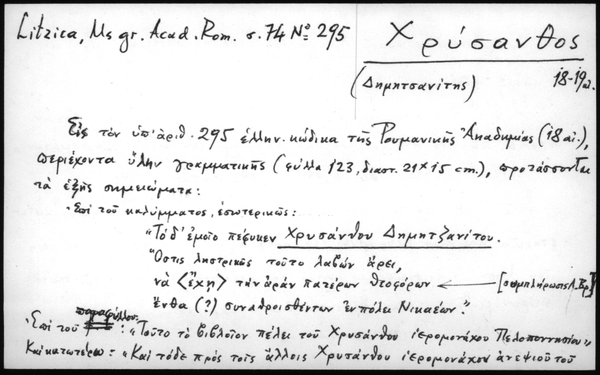 Litzica, Ms gr. Acad. Rom. σ. 74 Nº 295
Χρύσανθος
(Δημητσανίτης)
18-19 αἰ.
Εἰς τὸν ὑπ' ἀριθ. 295 ἑλλην. κώδικα τῆς Ρουμανικῆς Ἀκαδημίας (18 αἰ.),
περιέχοντα ὕλην γραμματικῆς (φύλλα 123, διαστ. 21×15 cm.), προτάσσονται
τὰ ἑξῆς σημειώματα:
Ἐπὶ τοῦ καλύμματος, ἐσωτερικῶς:
"Τὸ δ' ἐμοῖο πέφυκεν Χρυσάνθου Δημητζανίτου.
Ὅστις ληστρικῶς τοῦτο λαβὼν ἄρει,
νὰ <ἔχῃ> τὴν ἀρὰν πατέρων θεοφόρων ← [συμπλήρωσις Λ. Βρ.]
ἔνθα (?) συναθροισθέντων ἐν πόλει Νικαέων".
Ἐπὶ τοῦ παραφύλλου: "Τοῦτο τὸ βιβλίον πέλει τοῦ Χρυσάνθου ἱερομονάχου Πελοποννησίου"
Καὶ κατωτέρω: "Καὶ τόδε πρὸς τοῖς ἄλλοις Χρυσάνθου ἱερομονάχου ἀνεψιοῦ τοῦ